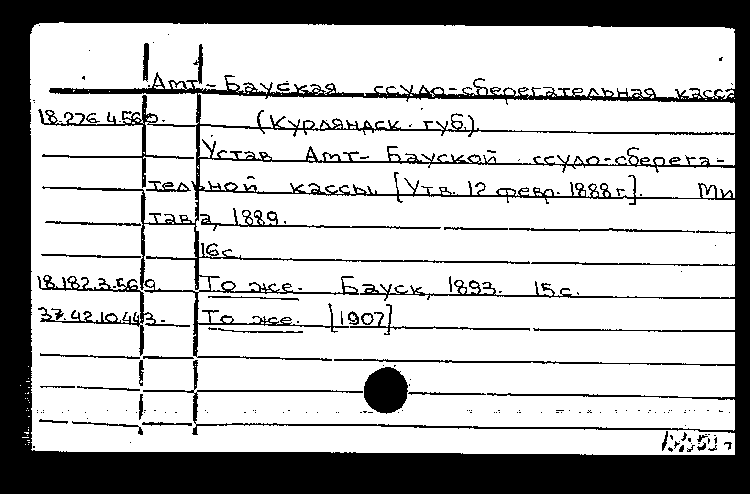 Амт-Бауская ссудо-сберегательная касса
18.276.4.569. (Курляндск. губ.)
Устав Амт-Бауской ссудо-сберега-
тельной кассы [Утв. 12 февр. 1888 г.]. Ми
тава, 1889.
16 с.
18.182.3.569. То же. Бауск, 1893. 15 с.
37.42.10.443. То же. [1907]